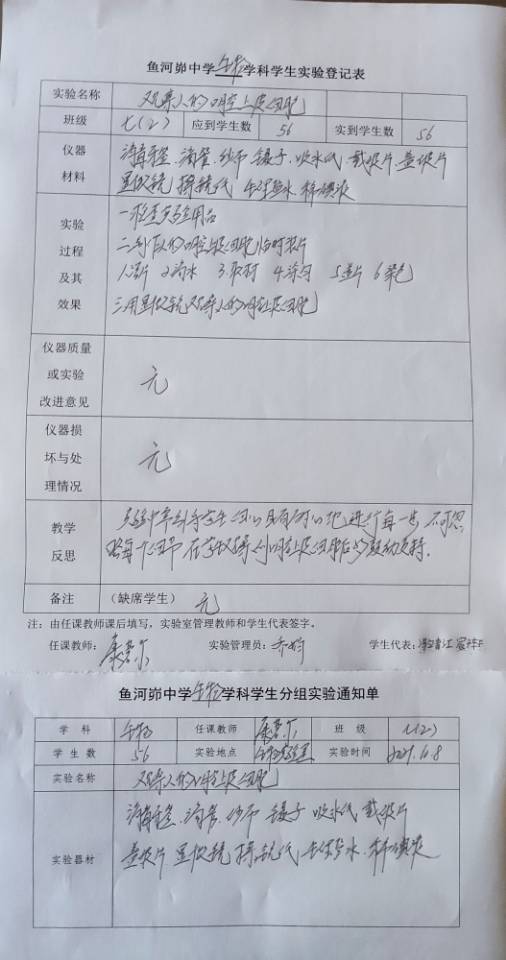 鱼河峁中学生物学科学生实验登记表
实验名称 观察人的口腔上皮细胞
班级 七(2) 应到学生数 56 实到学生数 56
仪器 消毒牙签、滴管、纱布、镊子、吸水纸、载玻片、盖玻片
材料 显微镜、擦镜纸、生理盐水、稀碘液
实验 一检查实验用品
过程 二制取人的口腔上皮细胞临时装片
及其 2滴水 3.取材 4涂匀 5盖片 6染色
效果 三用显微镜观察人的口腔上皮细胞
仪器质量
或实验 无
改进意见
仪器损
坏与处 无
理情况
教学 实验中牵引学生细心且有耐心地进行每一步,不可忽
反思 略每个细节
备注 (缺席学生) 无
注:由任课教师课后填写,实验室管理教师和学生代表签字。
任课教师: 实验管理员: 学生代表:
鱼河峁中学生物学科学生分组实验通知单
学 科 生物 任课教师 班 级 七(2)
学 生 数 56 实验地点 生物实验室 实验时间
实验名称 观察人的口腔上皮细胞
消毒牙签、滴管、纱布、镊子、吸水纸、载玻片
实验器材 盖玻片、显微镜、擦镜纸、生理盐水、稀碘液